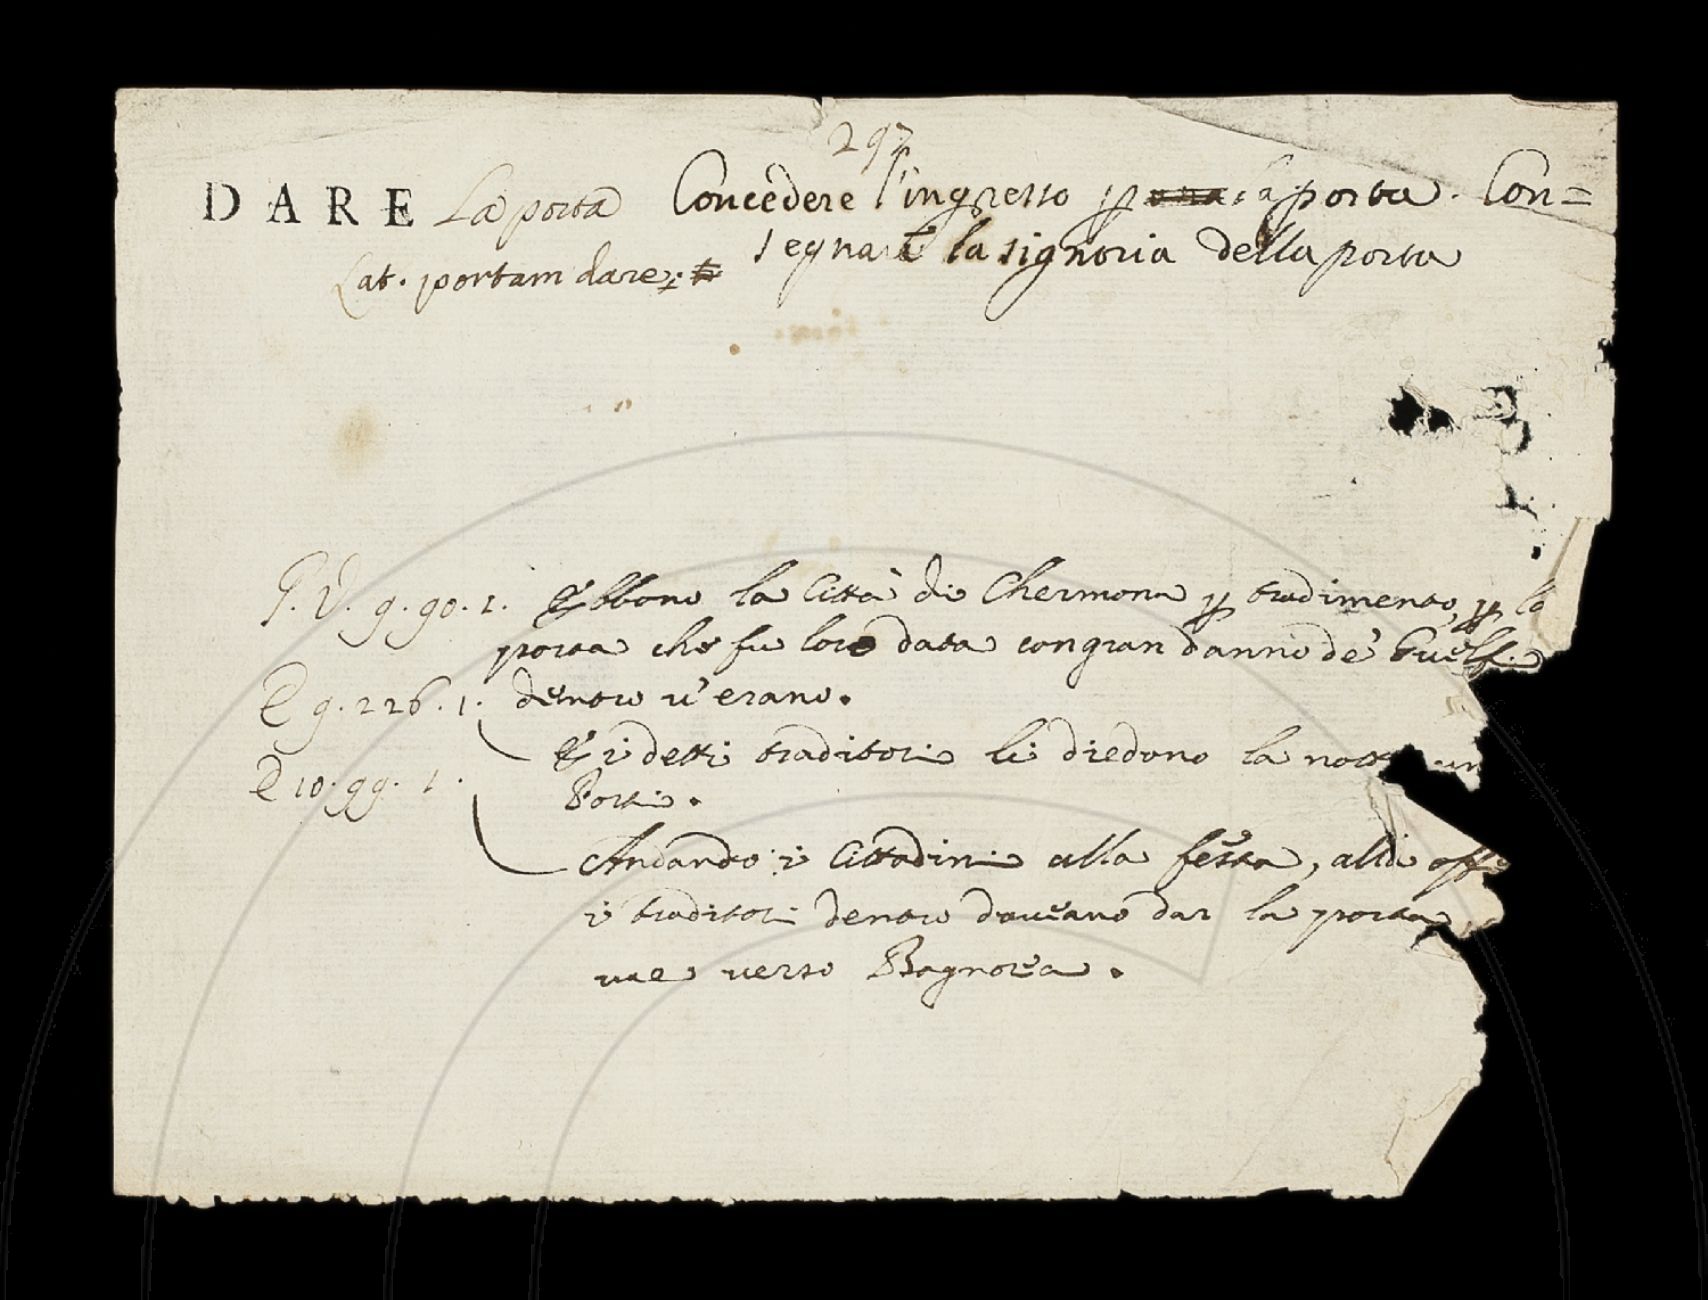 297
DARE La porta Concedere l'ingresso p la porta. Con=
Lat. portam dare: segnare la signoria della porta
G. V. 9. 90. 1. Ebbono la Città di Chermona p tradimento, p la
porta che fu loro data con gran danno de' Guelf.
E 9. 226. 1. dentro v'erano.
E i detti traditori li diedono la nott un
E 10. 99. 1. Porta.
Andando i Cittadini alla festa, alla off
i traditori dentro doveano dar la porta
verso Bagnorea.